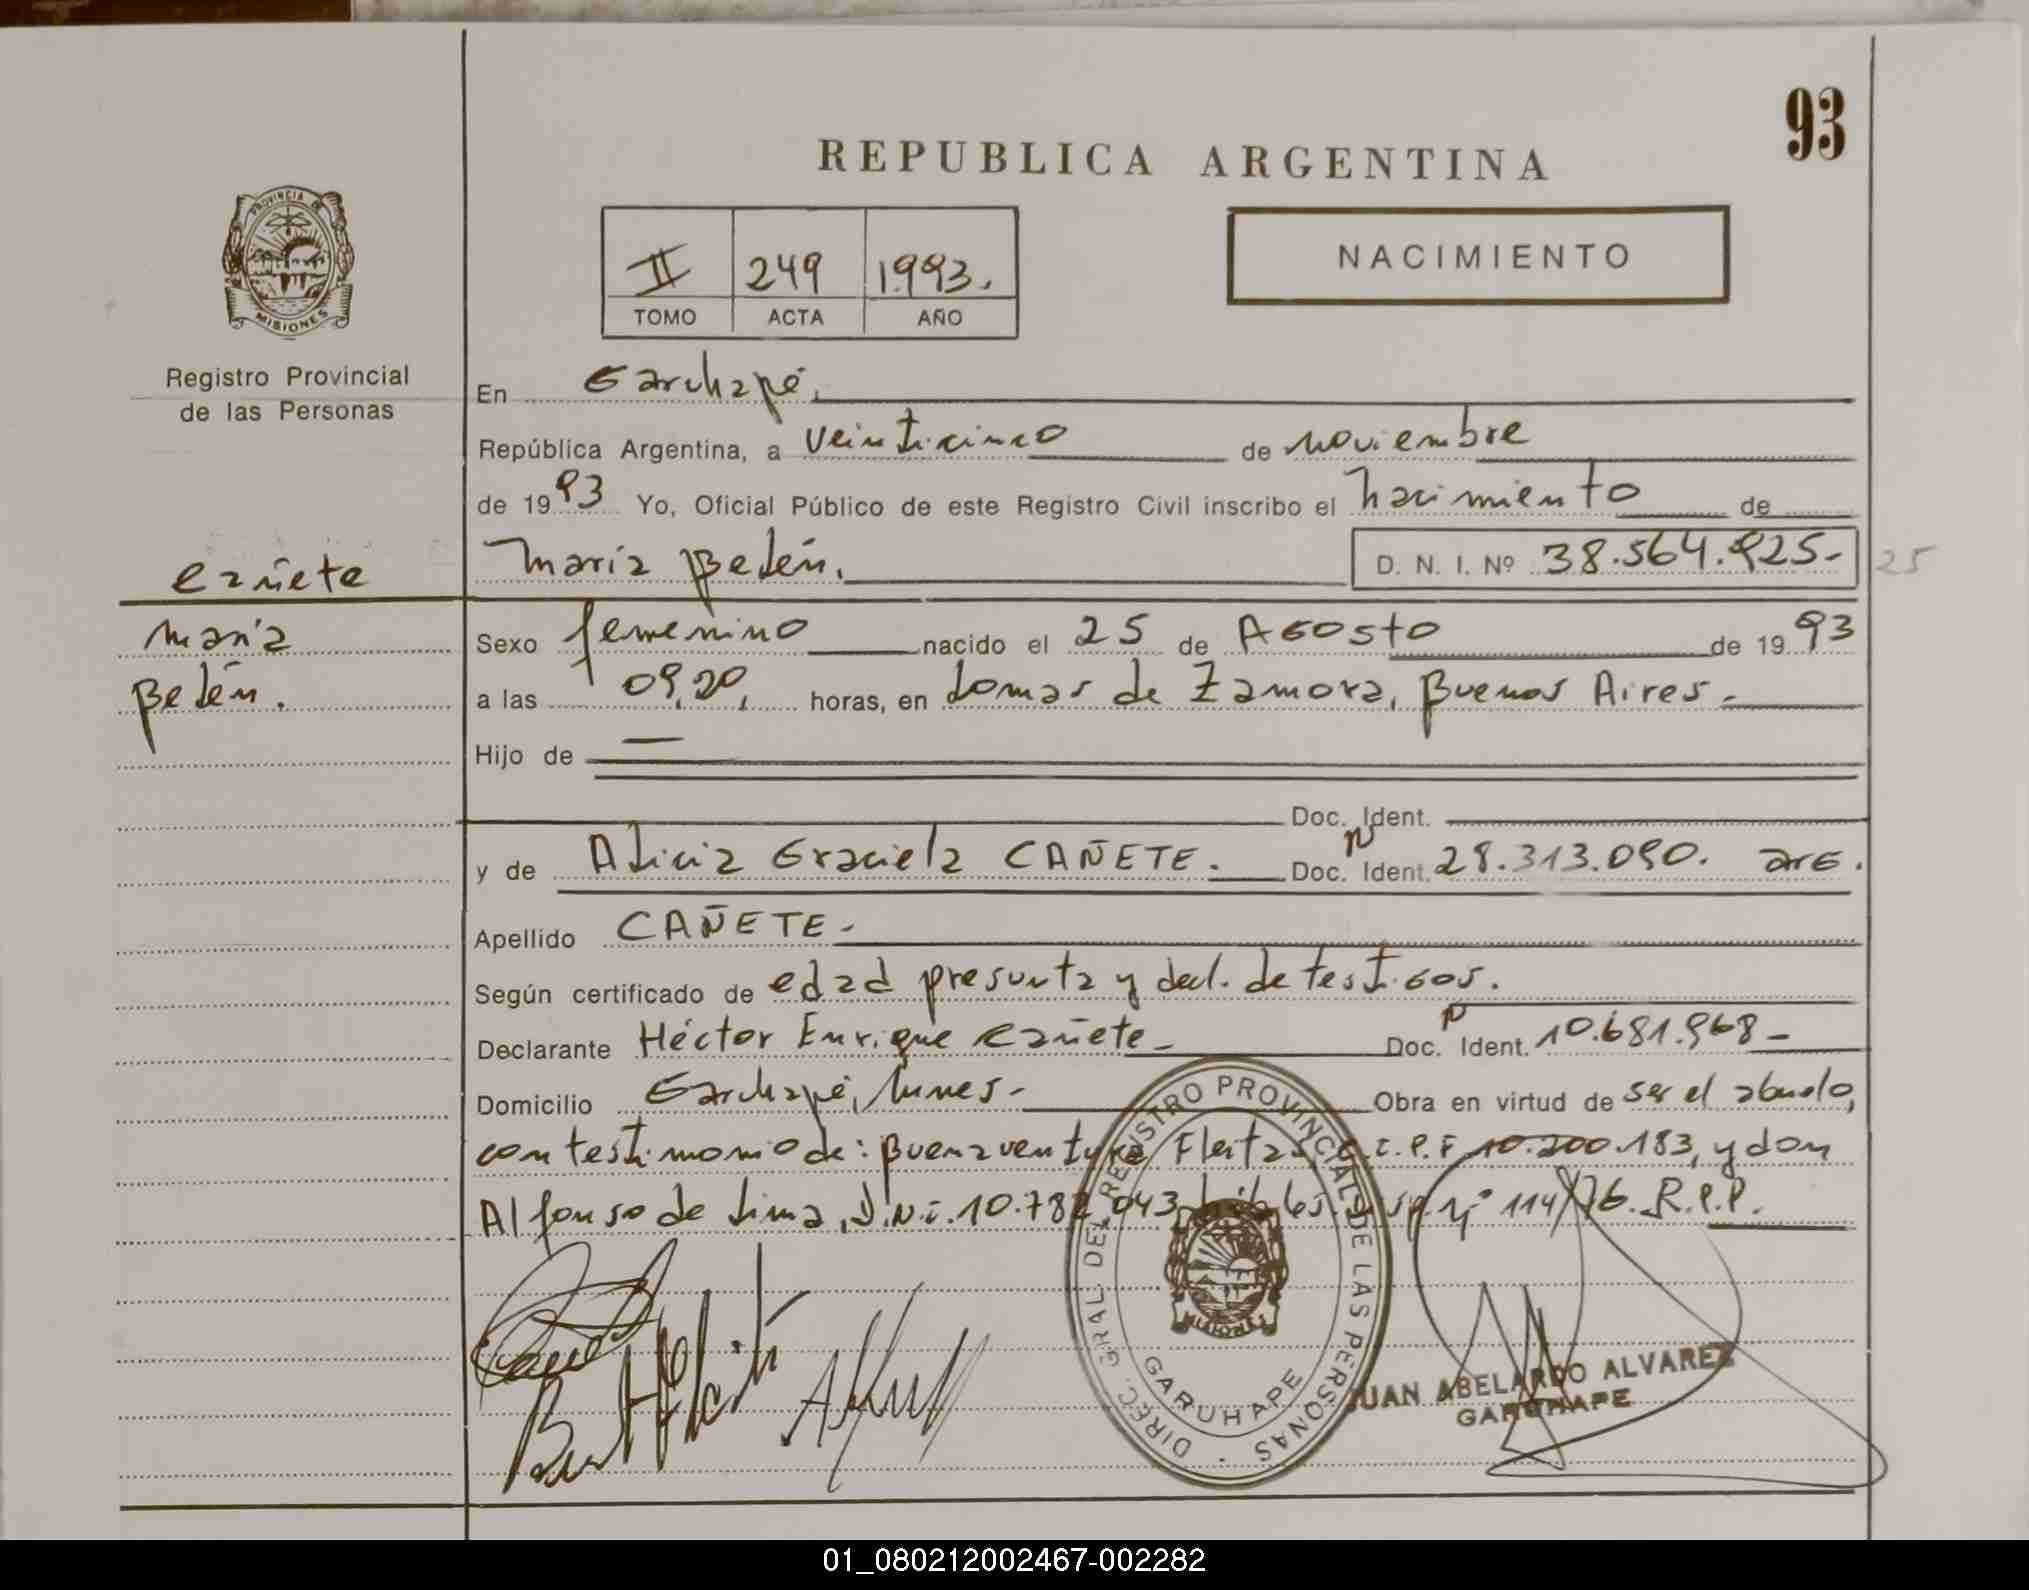 93
REPUBLICA ARGENTINA
PROVINCIA DE
MISIONES
II 249 1993.
TOMO ACTA AÑO
NACIMIENTO
Registro Provincial
de las Personas
En Garuhapé,
República Argentina, a veinticinco de noviembre
de 1993 Yo, Oficial Público de este Registro Civil inscribo el nacimiento de
María Belén. D. N. I. Nº 38.564.925.- 25
Cañete
María
Belén.
Sexo femenino nacido el 25 de Agosto de 1993
a las 09,20, horas, en Lomas de Zamora, Buenos Aires.-
Hijo de —
Doc. Ident.
y de Alicia Graciela CAÑETE. Doc. Ident. N 28.313.090. arg.
Apellido CAÑETE.-
Según certificado de edad presunta y decl. de testigos.
Declarante Héctor Enrique Cañete- Doc. Ident. N 10.681.968-
Domicilio Garuhapé, Mnes.- Obra en virtud de ser el abuelo,
con testimonio de: Buenaventura Fleitas, C.I.P.F 10.200.183, y don
Alfonso de Lima, D.N.i. 10.782.043 114/76. R.P.P.
DIREC. GRAL. DEL REGISTRO PROVINCIAL DE LAS PERSONAS
MISIONES
GARUHAPE
JUAN ABELARDO ALVAREZ
GARUHAPE
01_080212002467-002282